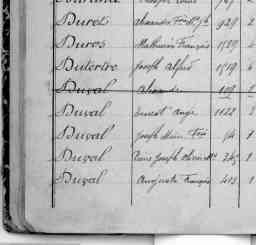 Duret Alexandre 929 2
Duros Mathurin François 1579 4
Dutertre Joseph Alfred 1519 4
Duval Alexandre 109 1
Duval Ernest Ange 1122 3
Duval Joseph Marie Fois 94 1
Duval Joseph 245 1
Duval Auguste François 413 1